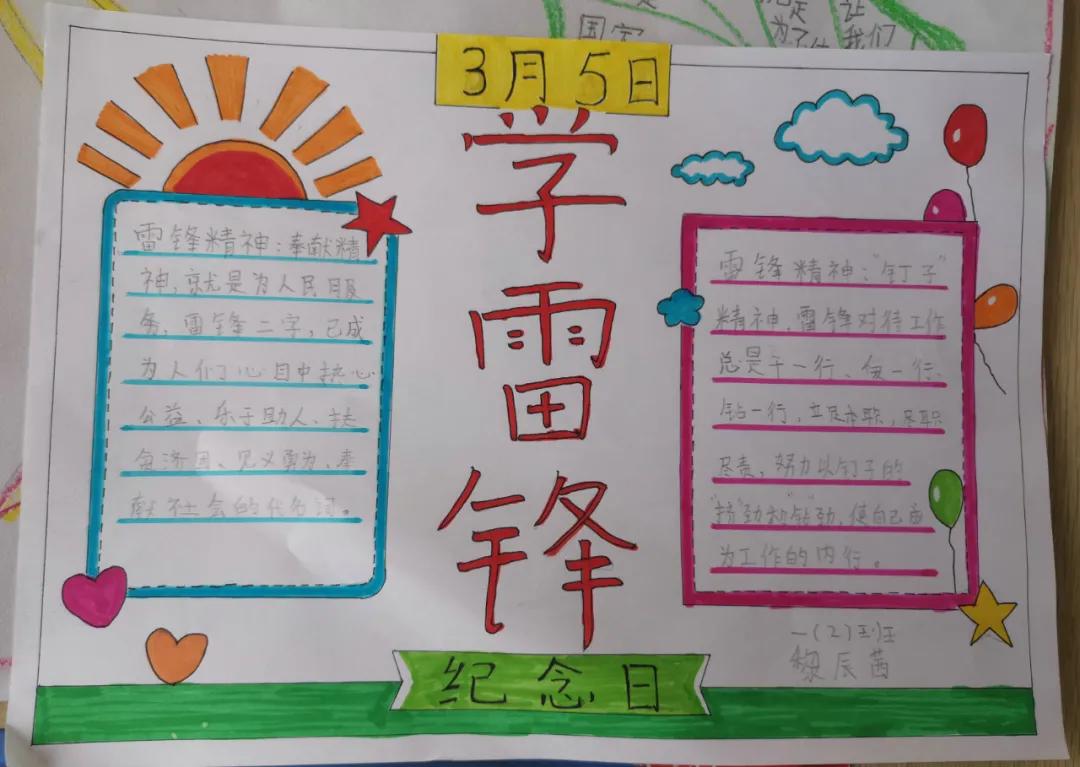 国家
为了
让
我们
3月5日
学
雷
锋
纪念日
雷锋精神：奉献精
神，就是为人民服
务，雷锋二字，已成
为人们心目中热心
公益、乐于助人、扶
贫济困、见义勇为、奉
献社会的代名词。
雷锋精神："钉子"
精神，雷锋对待工作
总是干一行、
钻一行，立足本职，尽职
尽责，努力以钉子的
"挤"劲和"钻"劲，使自己成
为工作的内行。
一(2)班
黎辰茜